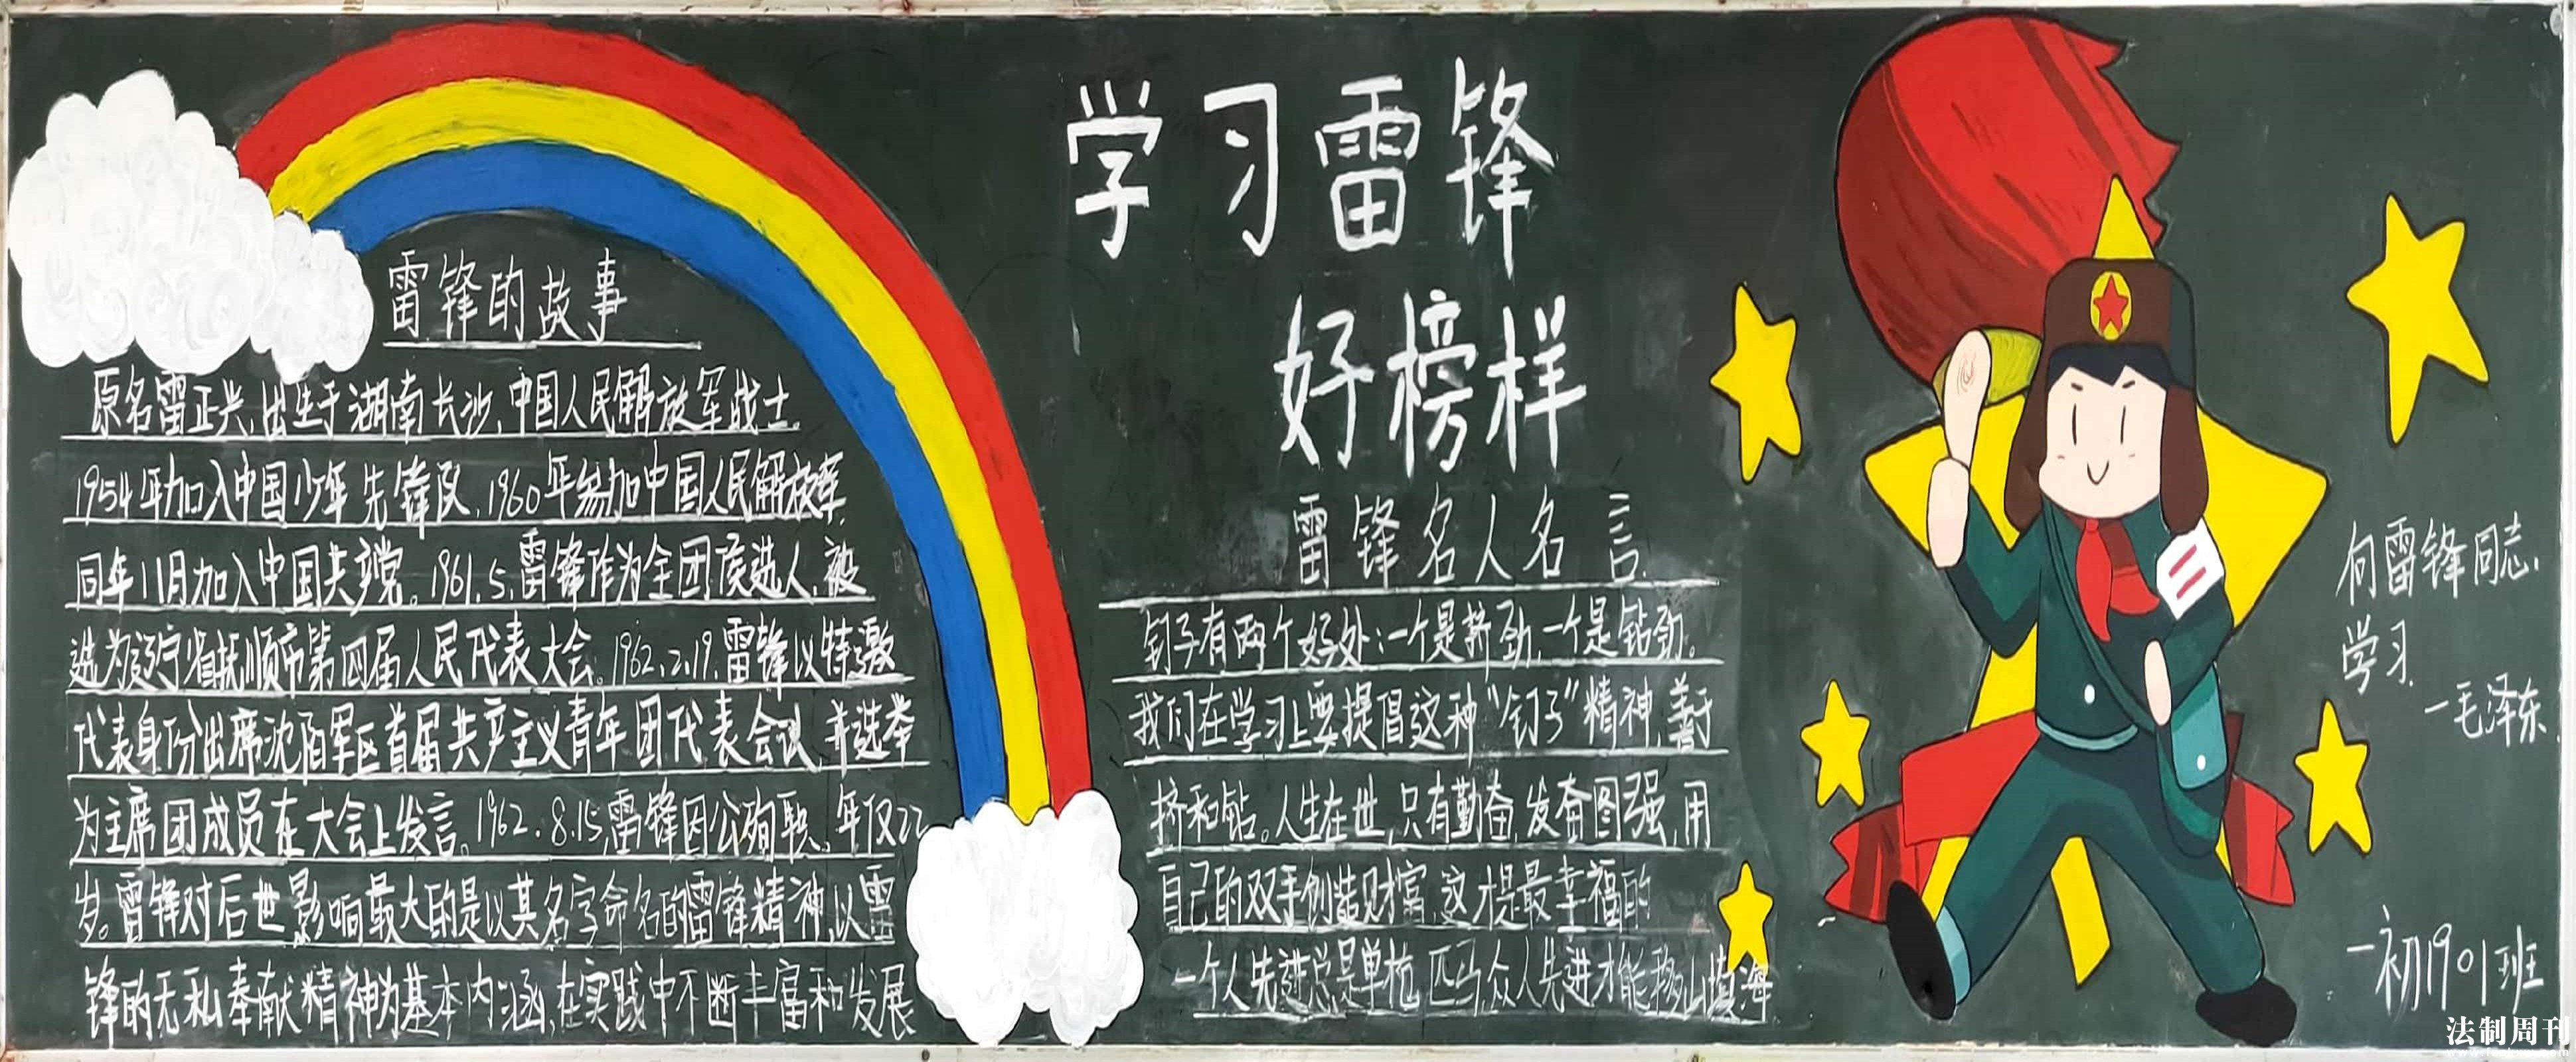 学习雷锋
好榜样
雷锋的故事
原名雷正兴,出生于湖南长沙,中国人民解放军战士。
1954年加入中国少年先锋队,1960年参加中国人民解放军,
同年11月加入中国共产党。1961.5,雷锋作为全团候选人,被
选为辽宁省抚顺市第四届人民代表大会。1962.2.19,雷锋以特邀
代表身份出席沈阳军区首届共产主义青年团代表会议,并选举
为主席团成员在大会上发言。1962.8.15,雷锋因公殉职,年仅22
岁。雷锋对后世影响最大的是以其名字命名的雷锋精神,以雷
锋的无私奉献精神为基本内涵,在实践中不断丰富和发展
雷锋名人名言
钉子有两个好处:一个是挤劲,一个是钻劲。
我们在学习上要提倡这种“钉子”精神,善于
挤和钻。人生在世,只有勤奋,发奋图强,用
自己的双手创造财富,这才是最幸福的
一个人先进总是单枪匹马,众人先进才能移山填海
向雷锋同志,
学习.
一毛泽东.
一初1901班
法制周刊